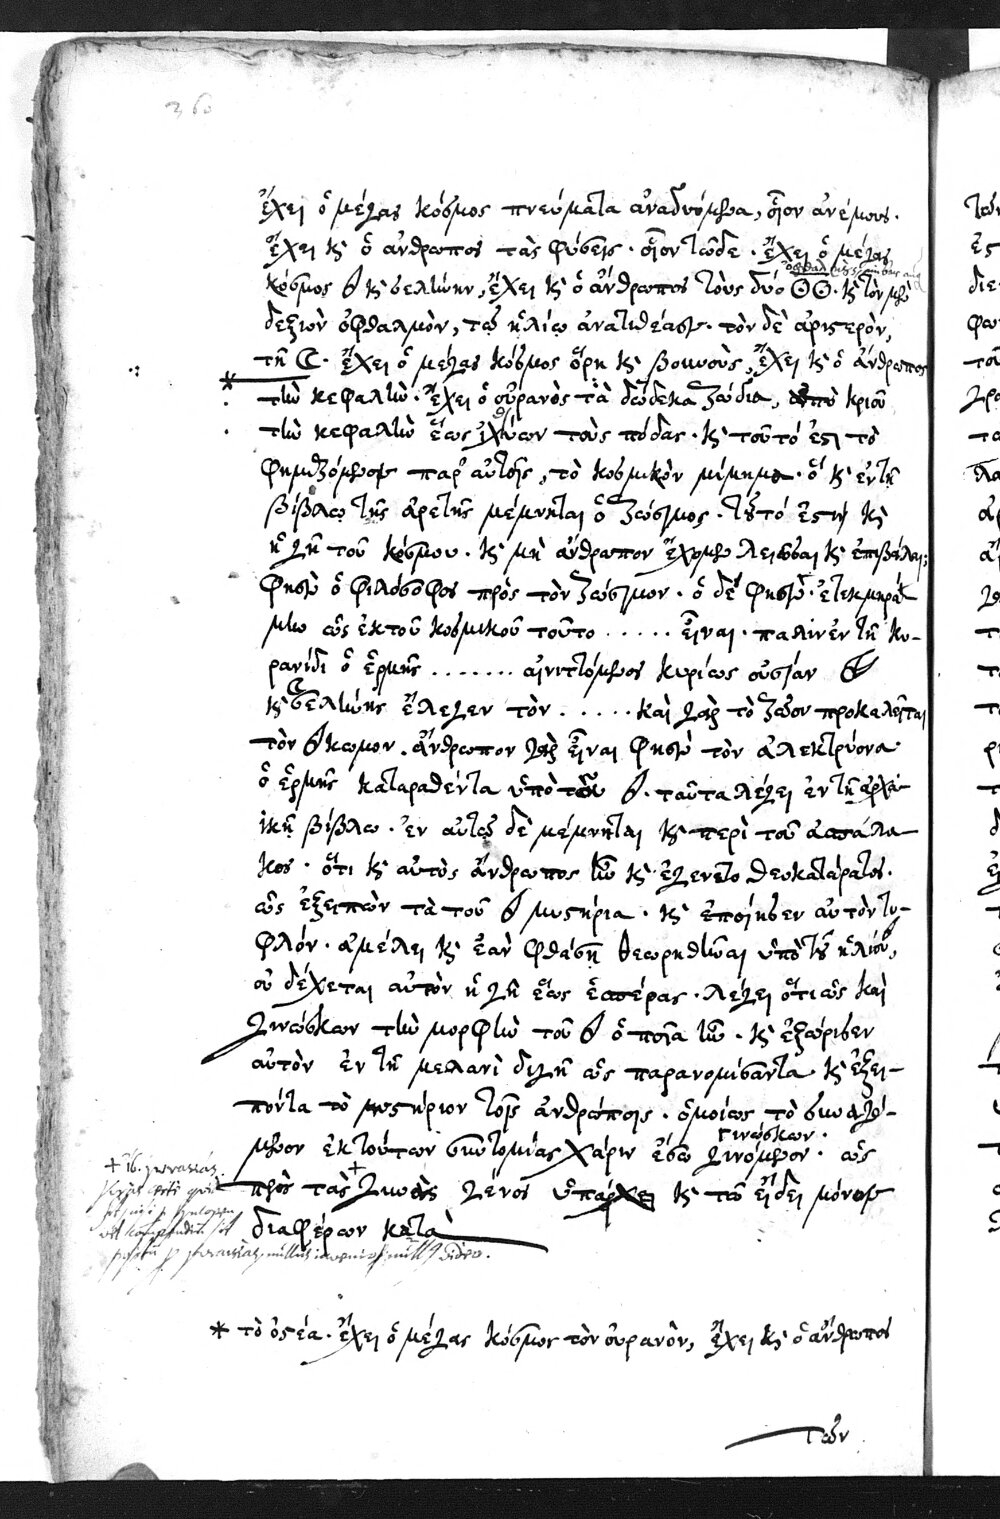 360
ἔχει ὁ μέγας κόσμος πνεύματα ἀναδυόμενα, οἷον ἀνέμους.
ἔχει κ(αὶ) ὁ ἄνθρωπος τὰς φύσεις. οἷον τῶδε. ἔχει ὁ μέγας
κόσμος ☉ κ(αὶ) σελήνην, ἔχει κ(αὶ) ὁ ἄνθρωπος τοὺς δύο ☉☉. κ(αὶ) τὸν μὲν
δεξιὸν ὀφθαλμὸν, τῷ ἡλίῳ ἀνατιθέασι. τὸν δὲ ἀριστερὸν,
τῇ ☾. ἔχει ὁ μέγας κόσμος ὄρη κ(αὶ) βουνοὺς, ἔχει κ(αὶ) ὁ ἄνθρωπος
* τὴν κεφαλὴν. ἔχει ὁ οὐρανὸς τὰ δώδεκα ζώδια, ἀπὸ κριοῦ
τὴν κεφαλὴν ἕως ἰχθύων τοὺς πόδας. κ(αὶ) τοῦτό ἐστι τὸ
φημιζόμενον παρ' αὐτοῖς, τὸ κοσμικὸν μίμημα. ὃ κ(αὶ) ἐν τῇ
βίβλῳ τῆς ἀρετῆς μέμνηται ὁ Ζώσιμος. τοῦτό ἐστιν κ(αὶ)
ἡ γῆ τοῦ κόσμου. κ(αὶ) μὴ ἄνθρωπον ἔχομεν λειῶσαι κ(αὶ) ἐπιβάλαι;
φησὶν ὁ φιλόσοφος πρὸς τὸν Ζώσιμον. ὁ δέ φησιν. ἐτεκμηρά
μην ὡς ἐκ τοῦ κοσμικοῦ τοῦτο ..... εἶναι. πάλιν ἐν τῇ κυ-
ρανίδι ὁ ἑρμῆς ........ αἰνιττόμενος κυρίως οὐσίαν ☉
κ(αὶ) σελήνης ἔλεγεν τὸν ..... καὶ γὰρ τὸ ζῶον προκαλεῖται
τὸν ☉ κωμον. ἄνθρωπον γὰρ εἶναι φησὶν τὸν ἀλεκτρύονα
ὁ ἑρμῆς καταραθέντα ὑπὸ τοῦ ☉. ταῦτα λέγει ἐν τῇ ἀρχα-
ϊκῇ βίβλῳ. ἐν αὐτῷ δὲ μέμνηται κ(αὶ) περὶ τοῦ ἀσπάλα
κος. ὅτι κ(αὶ) αὐτὸς ἄνθρωπος ἦν κ(αὶ) ἐγένετο θεοκατάρατος.
ὡς ἐξειπὼν τὰ τοῦ ☉ μυστήρια. κ(αὶ) ἐποίησεν αὐτὸν τυ-
φλόν. ἀμέλει κ(αὶ) ἐὰν φθάσῃ θεωρηθῆναι ὑπὸ τοῦ ἡλίου,
οὐ δέχεται αὐτὸν ἡ γῆ ἕως ἑσπέρας. λέγει ὅτι ὡς καὶ
γινώσκων τὴν μορφὴν τοῦ ☉ ὁποία ἦν. κ(αὶ) ἐξώρισεν
αὐτὸν ἐν τῇ μελανὶ διγῇ ὡς παρανομίσαντα κ(αὶ) ἐξει-
πόντα τὸ μυστήριον τοῖς ἀνθρώποις. ὁμοίως τὸ συναγό-
γινώσκων.
μενον ἐκ τούτων συντομίας χάριν ἔσω γινόμενον. ὡς
πρὸς τὰς γινώσεις γένος ὑπάρχει κ(αὶ) τῶ εἴδει μόνον
διαφέρων κατὰ
* τὸ ὀστέα. ἔχει ὁ μέγας κόσμος τὸν οὐρανὸν, ἔχει κ(αὶ) ὁ ἄνθρωπος
τῶν